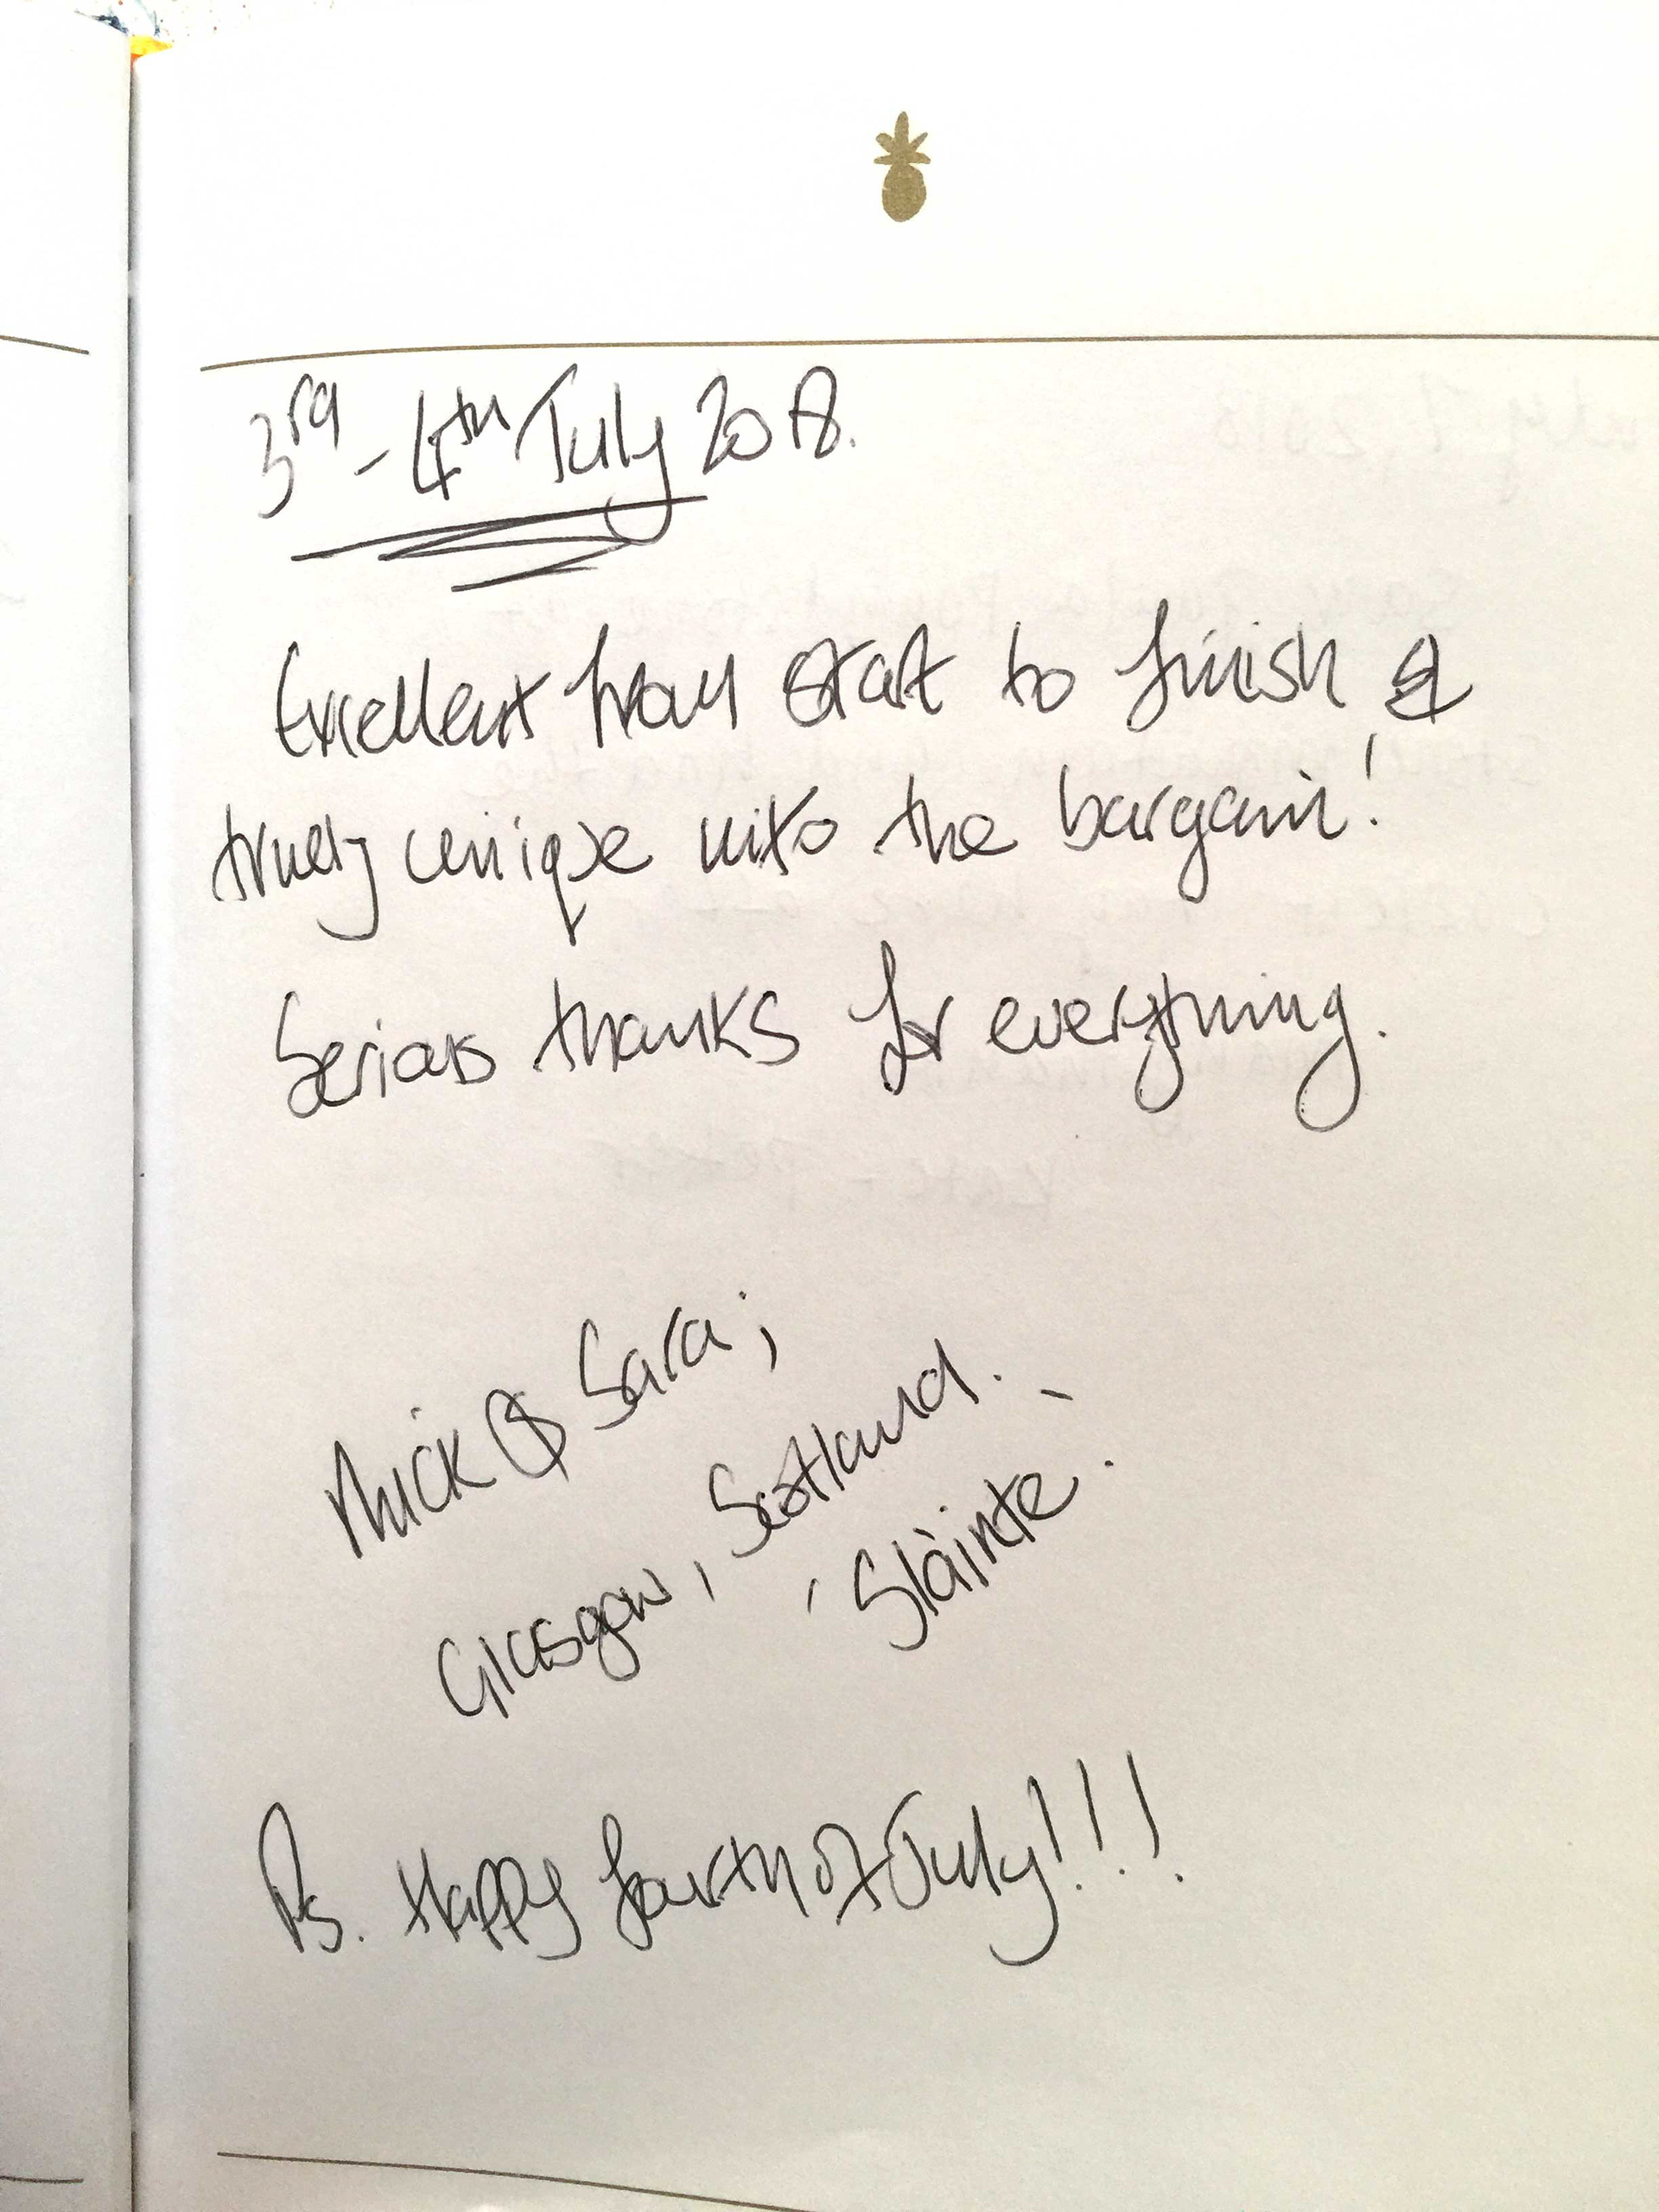 3rd - 4th July 2018.
Excellent from start to finish &
truely unique into the bargain!
Serious thanks for everything.
Mick & Sara;
Glasgow, Scotland.
'Slàinte'.
Ps. Happy fourth of July!!!